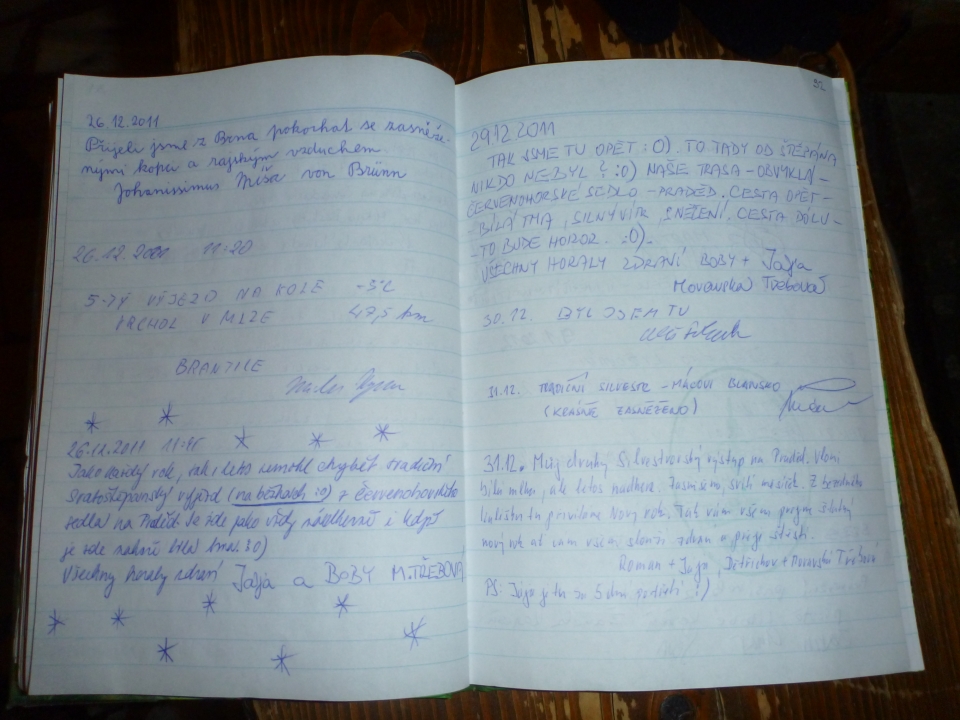 26.12.2011
Přijeli jsme z Brna pokochat se zasněže-
nými kopci a rajským vzduchem
Johanissimus Míša von Brünn
26.12.2011 11:20
5-TÝ VÝJEZD NA KOLE -3°C
VRCHOL V MLZE 47,5 km
BRANTICE
26.12.2011
Jako každý rok, tak i letos nemohl chybět tradiční
svatoštěpánský výjezd (na běžkách :o) z Červenohorského
sedla na Praděd. Je zde jako vždy nádherně i když
je zde
Všechny horaly zdraví Jája a BOBY M.TŘEBOVÁ
92
29.12.2011
TAK JSME TU OPĚT :O). TO TADY OD ŠTĚPÁNA
NIKDO NEBYL ? :O) NAŠE TRASA - OBVYKLÁ -
ČERVENOHORSKÉ SEDLO - PRADĚD. CESTA OPĚT -
BÍLÁ TMA, SILNÝ VÍTR, SNĚŽENÍ, CESTA DOLŮ -
- TO BUDE HOROR. :O).
VŠECHNY HORALY ZDRAVÍ BOBY + Jája
Moravská Třebová
30.12. BYL JSEM TU
31.12. TRADIČNÍ SILVESTR - MÁCOVI BLANSKO
(KRÁSNĚ ZASNĚŽENO)
31.12. Můj druhý Silvestrovský výstup na Praděd. Vloni
byla mlha, ale letos nádhera. Zasněženo, svítí
tu Nový rok. Tak vám všem přejem šťastný
nový rok ať vám všem slouží zdraví a přeje štěstí.
Roman + Jája, Dětřichov + Moravská Třebová
PS: Jája je tu za 5 dnů potřetí :)